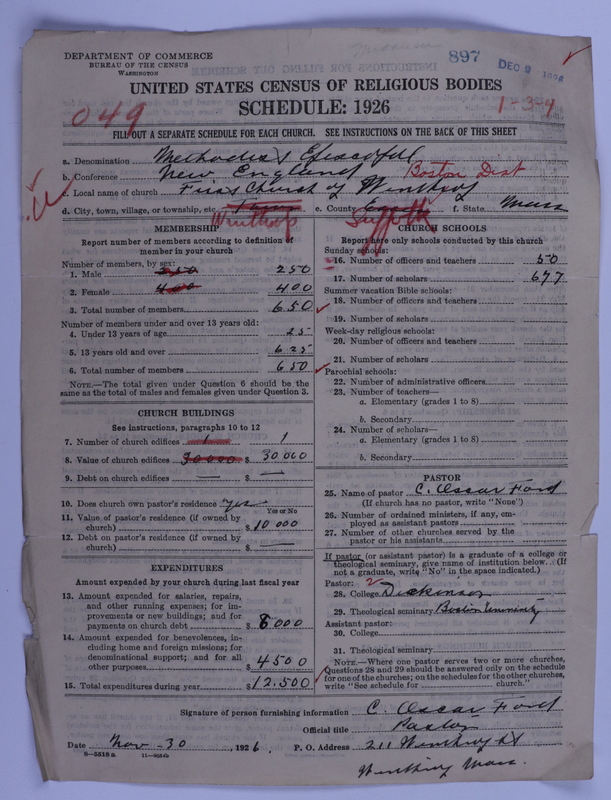 DEPARTMENT OF COMMERCE
BUREAU OF THE CENSUS
WASHINGTON
897
DEC 9
UNITED STATES CENSUS OF RELIGIOUS BODIES
SCHEDULE: 1926
049
1-3-4
FILL OUT A SEPARATE SCHEDULE FOR EACH CHURCH. SEE INSTRUCTIONS ON THE BACK OF THIS SHEET
a. Denomination Methodist Episcopal
b. Conference New England Boston Dist
c. Local name of church First Church of Winthrop
d. City, town, village, or township, etc. Town Winthrop e. County Suffolk f. State Mass
MEMBERSHIP
Report number of members according to definition of member in your church
Number of members, by sex:
1. Male 250 250
2. Female 400 400
3. Total number of members 650
Number of members under and over 13 years old:
4. Under 13 years of age 25
5. 13 years old and over 625
6. Total number of members 650
NOTE.—The total given under Question 6 should be the
same as the total of males and females given under Question 3.
CHURCH BUILDINGS
See instructions, paragraphs 10 to 12
7. Number of church edifices 1 1
8. Value of church edifices 30000 $ 30000
9. Debt on church edifices — $ —
10. Does church own pastor's residence? Yes
Yes or No
11. Value of pastor's residence (if owned by
church) $ 10000
12. Debt on pastor's residence (if owned by
church) $ —
EXPENDITURES
Amount expended by your church during last fiscal year
13. Amount expended for salaries, repairs,
and other running expenses; for im-
provements or new buildings; and for
payments on church debt $ 8000
14. Amount expended for benevolences, in-
cluding home and foreign missions; for
denominational support; and for all
other purposes $ 4500
15. Total expenditures during year $ 12.500
CHURCH SCHOOLS
Report here only schools conducted by this church
Sunday schools:
16. Number of officers and teachers 50
17. Number of scholars 677
Summer vacation Bible schools:
18. Number of officers and teachers
19. Number of scholars
Week-day religious schools:
20. Number of officers and teachers
21. Number of scholars
Parochial schools:
22. Number of administrative officers
23. Number of teachers—
a. Elementary (grades 1 to 8)
b. Secondary
24. Number of scholars—
a. Elementary (grades 1 to 8)
b. Secondary
PASTOR
25. Name of pastor C. Oscar Ford
(If church has no pastor, write "None")
26. Number of ordained ministers, if any, em-
ployed as assistant pastors
27. Number of other churches served by the
pastor or his assistants
If pastor (or assistant pastor) is a graduate of a college or
theological seminary, give name of institution below. (If
not a graduate, write "No" in the space indicated.)
Pastor: 2
28. College Dickinson
29. Theological seminary Boston University
Assistant pastor:
30. College
31. Theological seminary
NOTE.—Where one pastor serves two or more churches,
Questions 28 and 29 should be answered only on the schedule
for one of the churches; on the schedules for the other churches,
write "See schedule for church."
Signature of person furnishing information C. Oscar Ford
Official title Pastor
Date Nov - 30, 1926. P. O. Address 211 Winthrop St
8—5518a 11—9554b
Winthrop Mass.